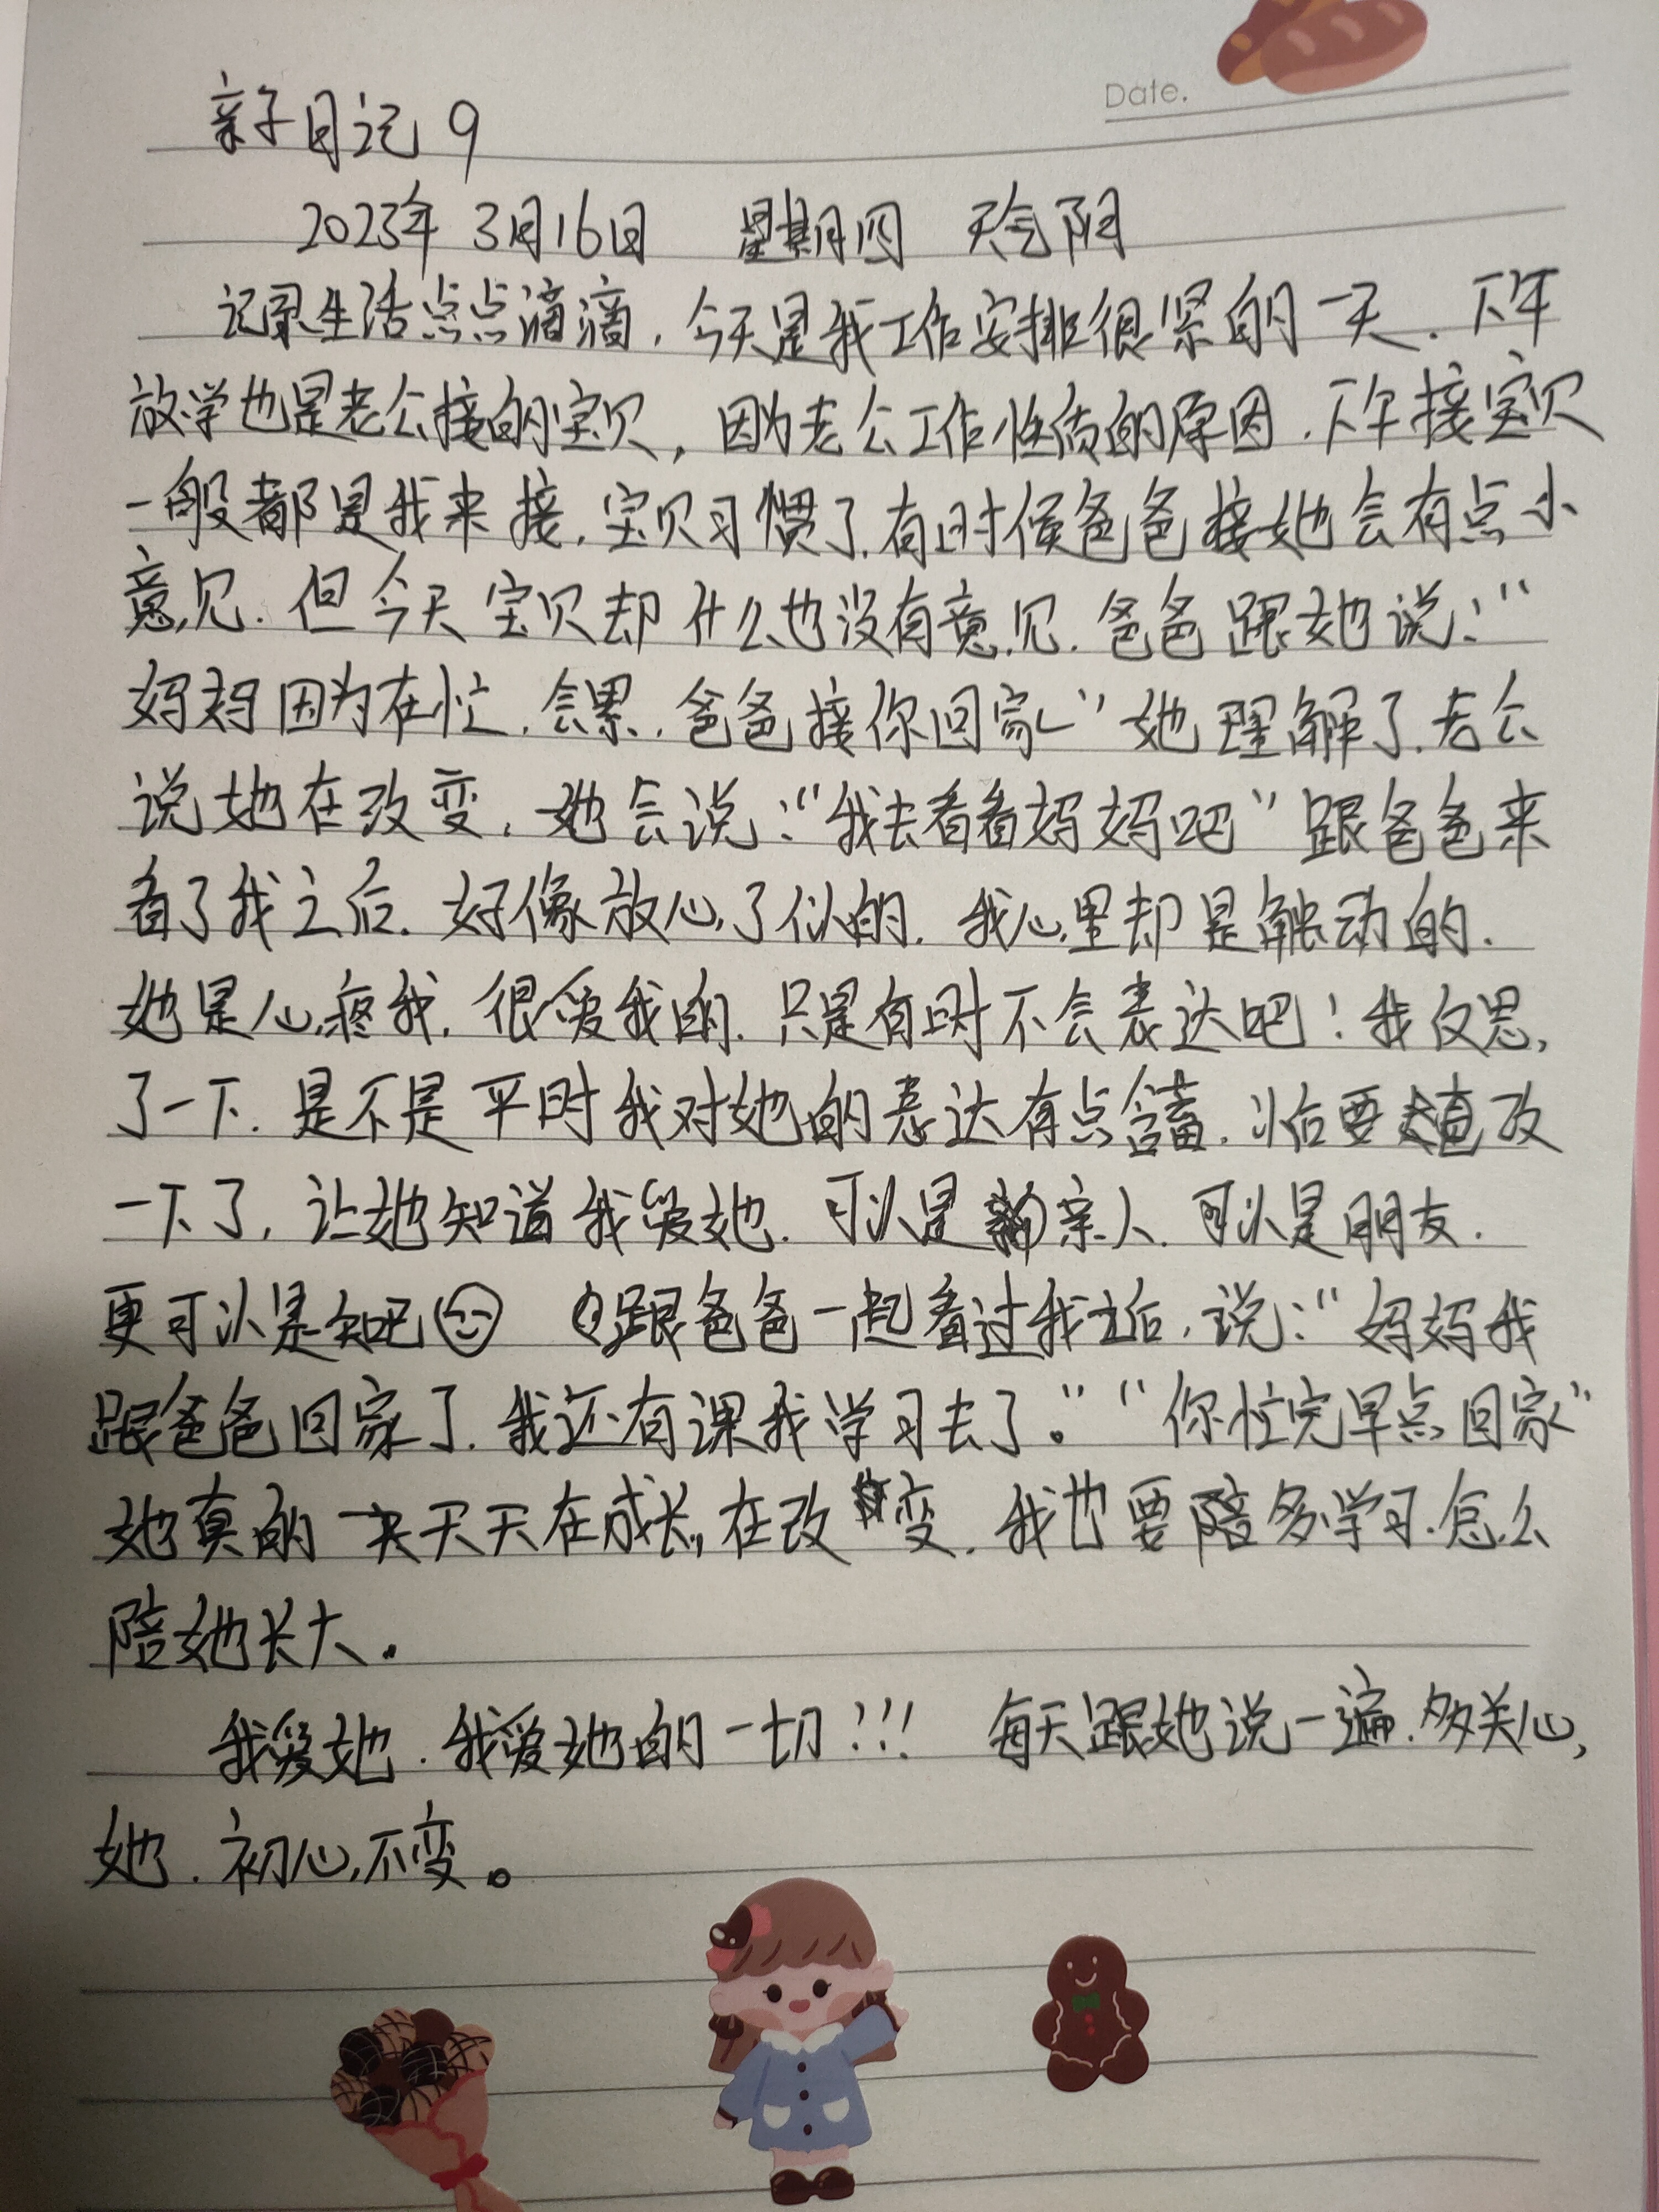 Date.
亲子日记 9
2023年 3月16日 星期四 天气阴
记录生活点点滴滴，今天是我工作安排很紧的一天．下午
放学也是老公接的宝贝，因为老公工作性质的原因．下午接宝贝
一般都是我来接．宝贝习惯了．有时候爸爸接她会有点小
意见．但今天宝贝却什么也没有意见．爸爸跟她说："
妈妈因为在忙．会累．爸爸接你回家" 她理解了．老公
说她在改变．她会说："我去看看妈妈吧" 跟爸爸来
看了我之后．好像放心了似的．我心里却是触动的．
她是心疼我．很爱我的．只是有时不会表达吧！我反思
了一下．是不是平时我对她的表达有点含蓄．以后要改
一下了，让她知道我爱她．可以是亲人．可以是朋友．
更可以是知己 跟爸爸一起看过我之后，说："妈妈我
跟爸爸回家了．我还有课我学习去了。" "你忙完早点回家"
她真的一天天在成长，在改变．我也要陪多学习．怎么
陪她长大．
我爱她．我爱她的一切!!! 每天跟她说一遍．多关心
她．初心不变。